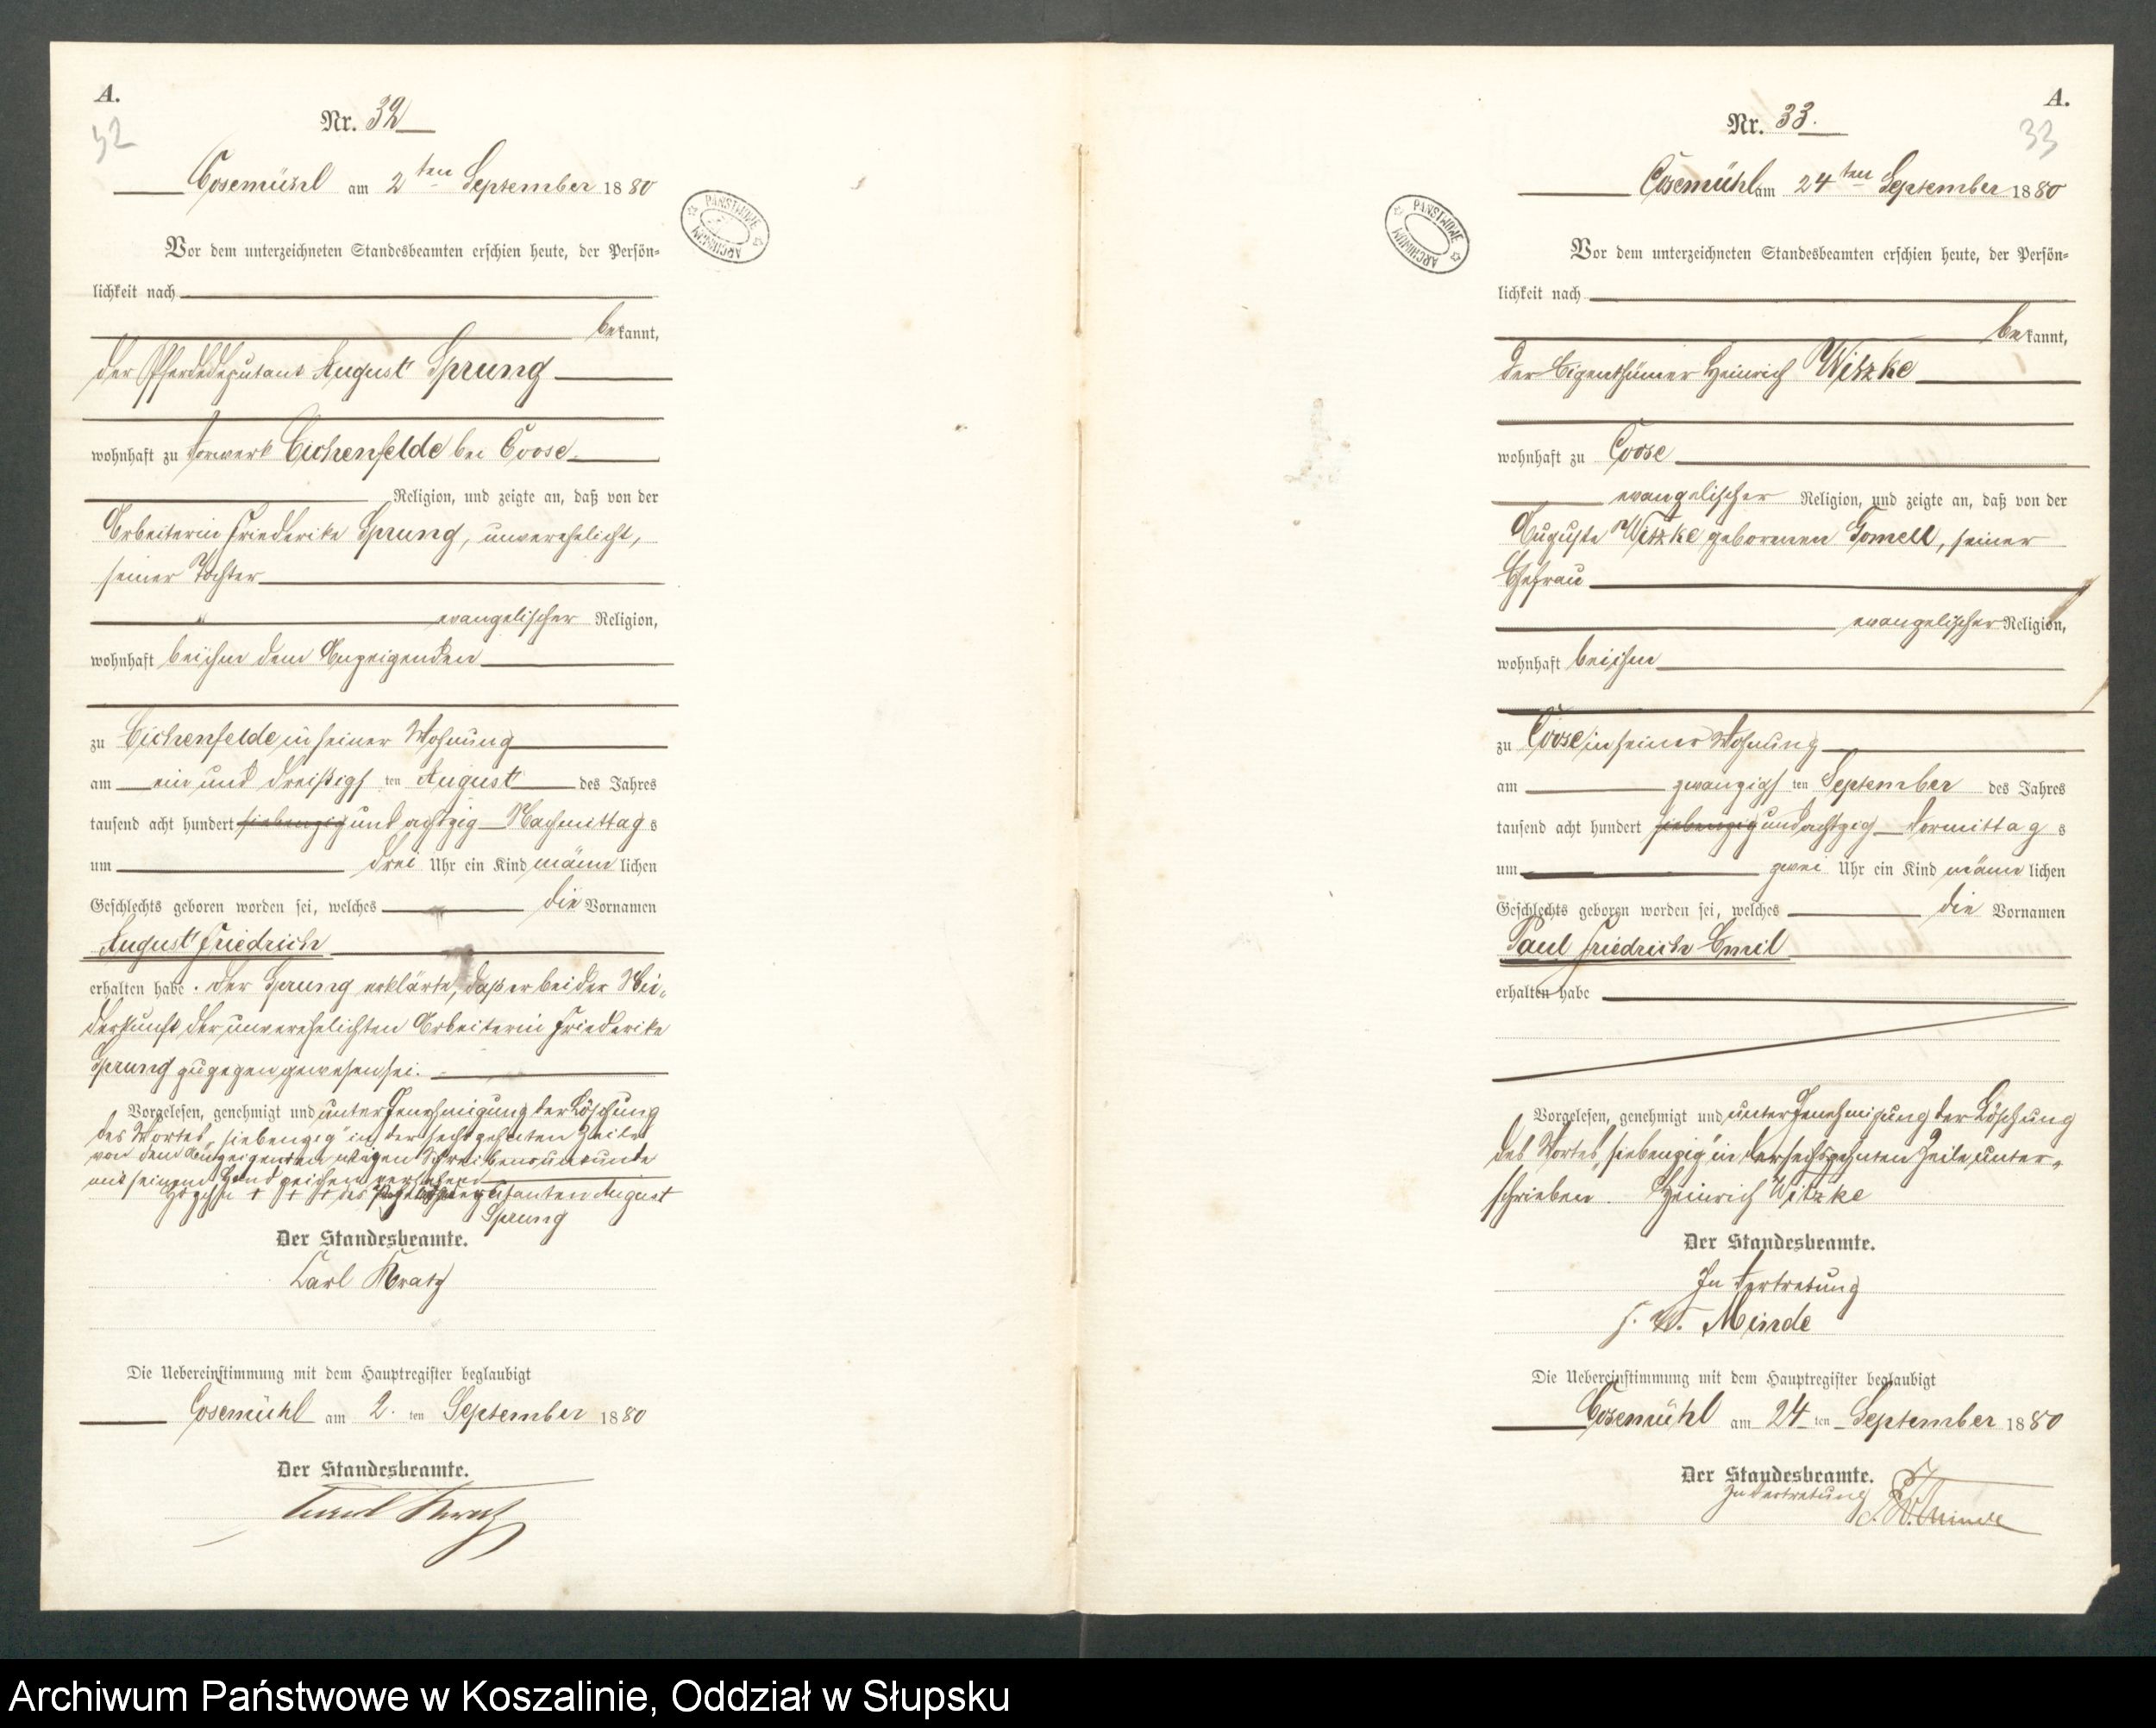 A.
32
Nr. 32
Cosemühl am 2ten September 1880
PAŃSTWOWE ARCHIWUM
Vor dem unterzeichneten Standesbeamten erschien heute, der Persön-
lichkeit nach
bekannt,
der Pferdedeputant August Sprung
wohnhaft zu Vorwerk Eichenfelde bei Coose
Religion, und zeigte an, daß von der
Arbeiterin Friederike Sprung, unverehelicht,
seiner Tochter
evangelischer Religion,
wohnhaft bei ihm dem Anzeigenden
zu Eichenfelde in seiner Wohnung
am ein und dreißigsten August des Jahres
tausend acht hundert siebenzig und achtzig Nachmittags
um drei Uhr ein Kind männlichen
Geschlechts geboren worden sei, welches die Vornamen
August Friedrich
erhalten habe. Der Sprung erklärte, daß er bei der Nie-
derkunft der unverehelichten Arbeiterin Friederike
Sprung zugegen gewesen sei.
Vorgelesen, genehmigt und unter Genehmigung der Löschung
des Wortes "siebenzig" in der sechszehnten Zeile
von dem Anzeigenden wegen Schreibensunkunde
mit seinem Handzeichen versehen
Hdzchn + + + des Pferdedeputanten August
Sprung
Der Standesbeamte.
Carl Kratz
Die Uebereinstimmung mit dem Hauptregister beglaubigt
Cosemühl am 2. ten September 1880
Der Standesbeamte.
Carl Kratz
A.
33
Nr. 33.
Cosemühl am 24ten September 1880
PAŃSTWOWE ARCHIWUM
Vor dem unterzeichneten Standesbeamten erschien heute, der Persön-
lichkeit nach
bekannt,
der Eigenthümer Heinrich Witzke
wohnhaft zu Coose
evangelischer Religion, und zeigte an, daß von der
Auguste Witzke geborenen Gomell, seiner
Ehefrau
evangelischer Religion,
wohnhaft bei ihm
zu Coose in seiner Wohnung
am zwanzigsten September des Jahres
tausend acht hundert siebenzig und achtzig Vormittags
um zwei Uhr ein Kind männlichen
Geschlechts geboren worden sei, welches die Vornamen
Paul Friedrich Emil
erhalten habe
Vorgelesen, genehmigt und unter Genehmigung der Löschung
des Wortes "siebenzig" in der sechszehnten Zeile unter-
schrieben. Heinrich Witzke
Der Standesbeamte.
In Vertretung
F. W. Minde
Die Uebereinstimmung mit dem Hauptregister beglaubigt
Cosemühl am 24 ten September 1880
Der Standesbeamte.
In Vertretung
F. W. Minde
Archiwum Państwowe w Koszalinie, Oddział w Słupsku